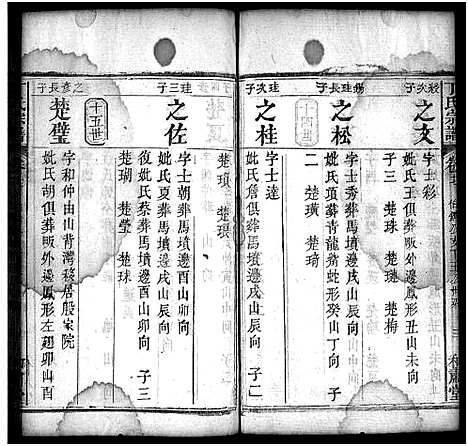 氏宗譜
毅次子
之文
字士彩
妣氏王俱葬畈外邊鳳形丑山未向
子三 楚珠 楚梅
十四世
錫長子
之松
字士秀葬馬墳邊戌山辰向
妣氏項葬青龍嘴蛇形癸山丁向 子
二 楚璜 楚琦
珪次子
之桂
字士達
妣氏詹俱葬馬墳邊戌山辰向 子二
楚瑣
珪三子
之佐
字士朝葬馬墳邊酉山卯向
妣氏夏葬馬墳邊戌山辰向
後妣氏蔡葬馬墳邊酉山卯向 子三
楚瑚 楚瑩 楚球
十五世
之彥長子
楚璧
字和仲由山背灣移居殷家院
妣氏胡俱葬畈外邊鳳形左翅卯山酉